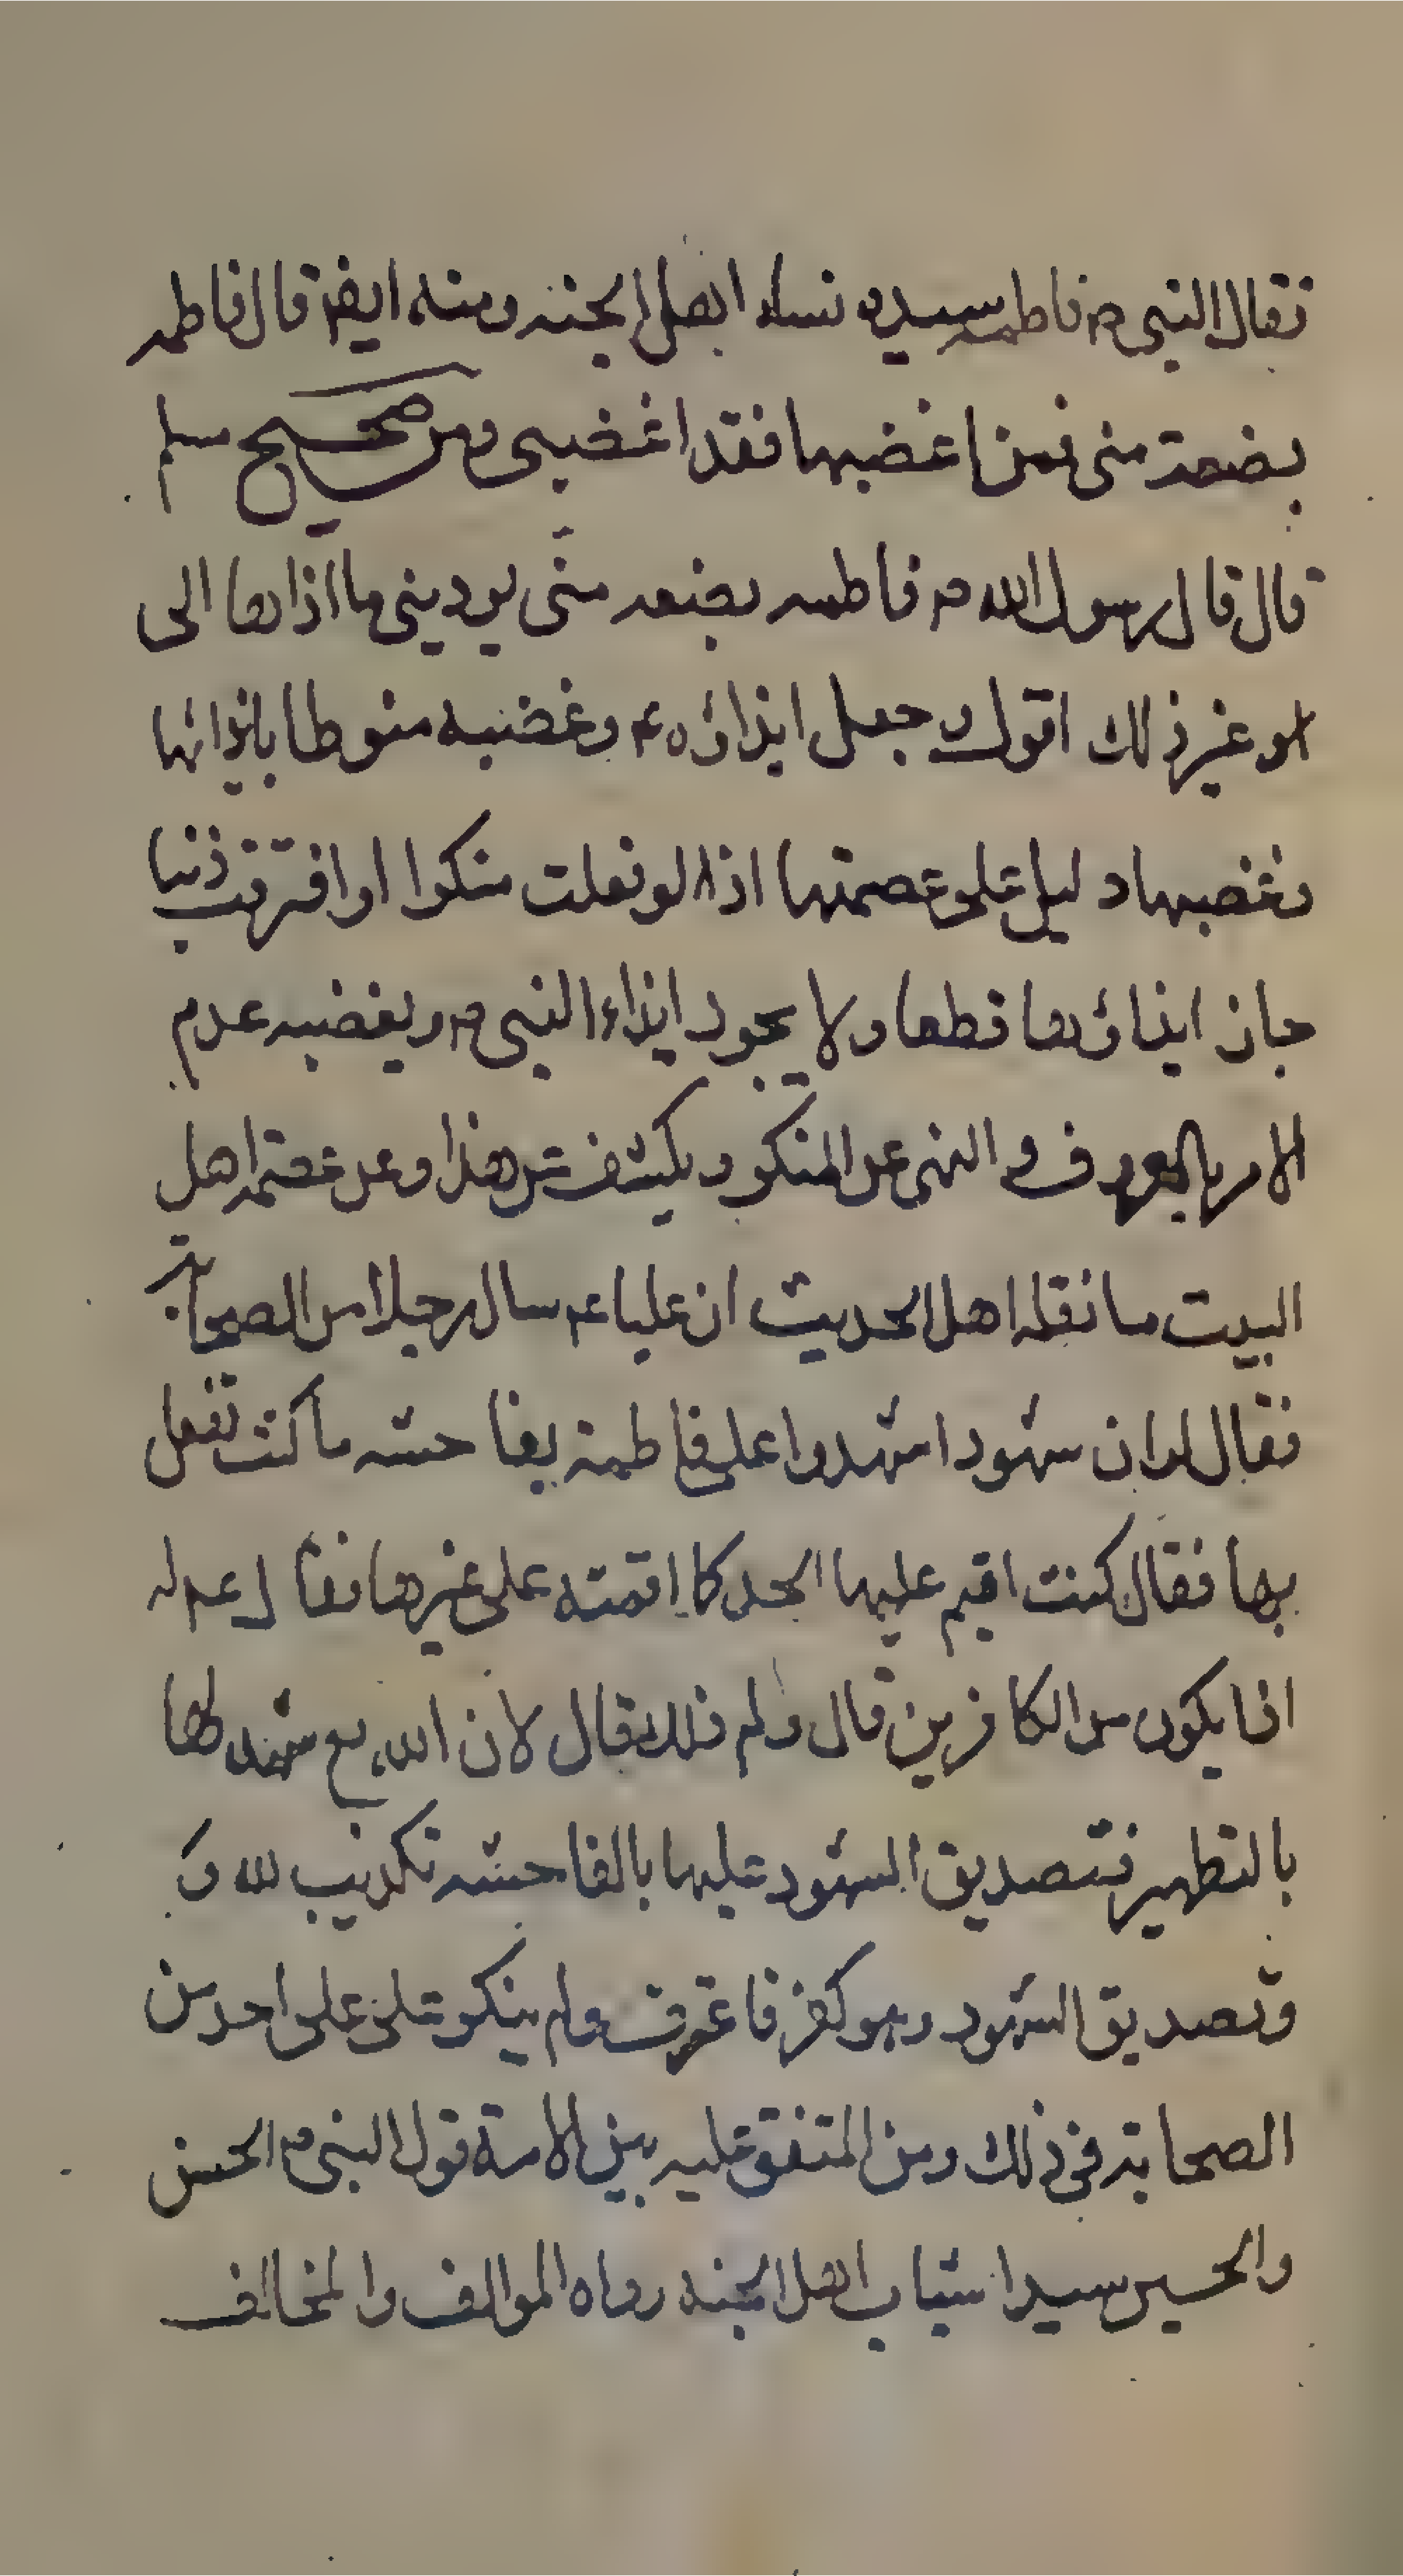 فقال النبي ص فاطمه سيده نساء اهل الجنه ومنه ايض قال فاطمه
بضعة مني فمن اغضبها فقد اغضبني ومن صحيح مسلم
قال قال رسول الله ص فاطمه بضعه منّي يوديني ما اذاها الى
غير ذلك اقول وجعل ايذاؤه ع وغضبه منوطا بايذائها
وغضبها دليل على عصمتها اذ لو فعلت منكرا او اقترفت ذنبا
جاز ايذاؤها قطعا ولا يجوز ايذاء النبي ص ويغضبه عدم
الامر بالمعروف و النهي عن المنكر ويكشف عن هذا وعن عصمة اهل
البيت ما نقله اهل الحديث ان عليا ع سال رجلا من الصحابة
فقال له ان شهود اشهدوا على فاطمة بفاحشه ما كنت تفعل
بها فقال كنت اقيم عليها الحد كما اقمته على غيرها فقال ع له
اذا يكون من الكافرين قال ولم ذلك قال لان الله تع شهد لها
بالتطهير فتصديق الشهود عليها بالفاحشه تكذيب لله و
وتصديق الشهود وهو كفر فاعترف ولم ينكر على علي احد من
الصحابة في ذلك ومن المتفق عليه بين الامة قول النبي ص الحسن
والحسين سيدا شباب اهل الجنه رواه الموالف والمخالف